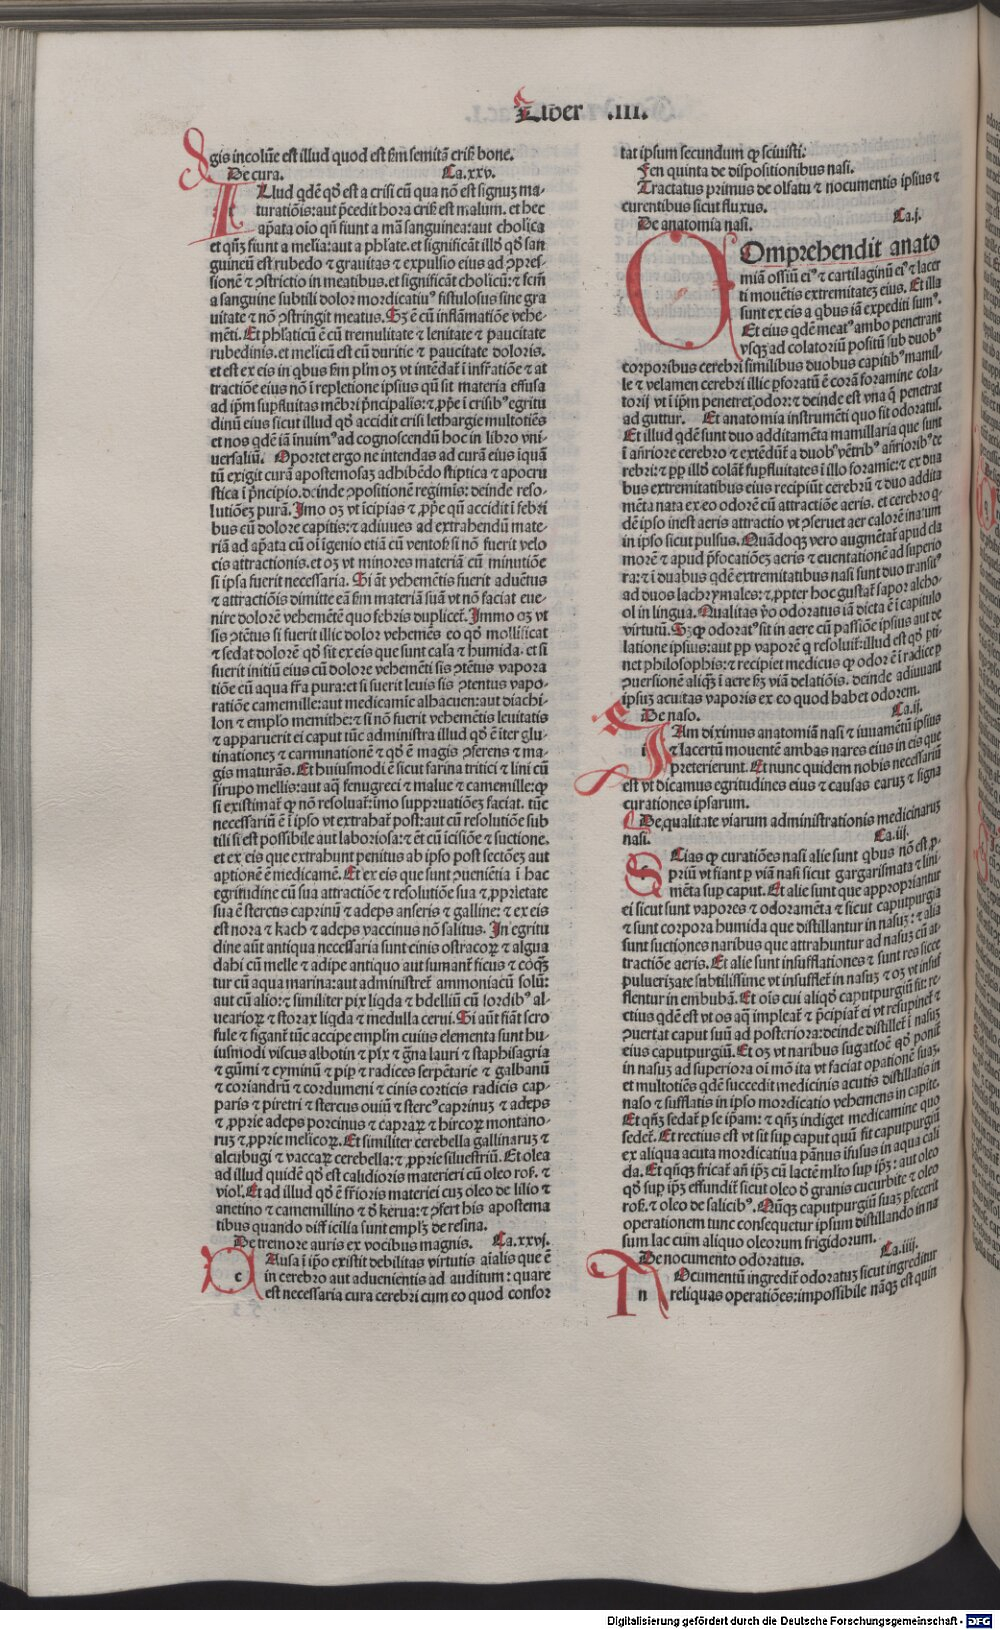 Liber .III.
gis incolũe est illud quod est ſm semitã crisꝭ bone.
De cura. Ca.xxv.
ILlud qdẽ qđ est a crisi cũ qua nõ est signuȝ ma-
turatiõis: aut p̃cedit hora crisꝭ est malum. et hec
apata oĩo qñ fiunt a mã sanguinea: aut cholica
et qñꝫ fiunt a melia: aut a phl̃ate. et significãt illđ qđ san
guineũ est rubedo ⁊ grauitas ⁊ expulsio eius ad ꝯpres-
sionẽ ⁊ ꝯstrictio in meatibus. et significãt cholicũ: ⁊ fcm̃
a sanguine subtili dolor mordicatiuꝰ fistulosus sine gra
uitate ⁊ nõ ꝯstringit meatus. Sȝ ẽ cũ inflãmatiõe vehe-
mẽti. Et phl̃aticũ ẽ cũ tremulitate ⁊ lenitate ⁊ paucitate
rubedinis. et melicũ est cũ duritie ⁊ paucitate doloris.
et est ex eis in qbus ſm plm̃ oȝ vt intẽdat̃ ĩ infr̃atiõe ⁊ at
tractiõe eius nõ ĩ repletione ipsius qñ sit materia effusa
ad ip̃m supfluitas mẽbri p̃ncipalis: ⁊ ꝓp̃e ĩ crisibꝰ egritu
dinũ eius sicut illud qđ accidit crisi lethargie multotiẽs
et nos qdẽ iã ĩnuimꝰ ad cognoscendũ hoc in libro vni-
uersaliũ. Oportet ergo ne intendas ad curã eius iquã
tũ exigit curã apostemosaȝ adhibẽdo stiptica ⁊ apocru
stica ĩ p̃ncipio. deinde ꝯpositionẽ regimĩs: deinde reso-
lutiõeȝ purã. Imo oȝ vt icipias ⁊ ꝓp̃e qñ accidit ĩ febri
bus cũ dolore capitis: ⁊ adiuues ad extrahendũ mate-
riã ad ap̃ata cũ oĩ ĩgenio etiã cũ ventosꝭ si nõ fuerit velo
cis attractionis. et oȝ vt minores materiã cũ minutiõe
si ipsa fuerit necessaria. Si aũt vehemẽtis fuerit aduẽtus
⁊ attractiõis dimitte eã ſm materiã suã vt nõ faciat eue-
nire dolorẽ vehemẽtẽ quo febris duplicet̃. Immo oȝ vt
sis ꝯtẽtus si fuerit illic dolor vehemẽs eo qđ mollificat
⁊ sedat dolorẽ qđ sit ex eis que sunt cal̃a ⁊ humida. et si
fuerit initiũ eius cũ dolore vehemẽti sis ꝯtẽtus vapora
tiõe cũ aqua fr̃a pura: et si fuerit leuis sis ꝯtentus vapo-
ratiõe camemille: aut medicamĩe alhacuen: aut diachi-
lon ⁊ emplo memithe: ⁊ si nõ fuerit vehemẽtis leuitatis
⁊ apparuerit ei caput tũc administra illud qđ ẽ iter glu-
tinationeȝ ⁊ carminationẽ ⁊ qđ ẽ magis ꝯferens ⁊ ma-
gis maturãs. Et huiusmodi ẽ sicut farina tritici ⁊ lini cũ
sirupo mellis: aut aq̃ fenugreci ⁊ malue ⁊ camemille: ꝙ
si existimat̃ ꝙ nõ resoluat̃: imo suppruatiõeȝ faciat. tũc
necessariũ ẽ ĩ ipso vt extrahat̃ post: aut cũ resolutiõe sub
tili si est possibile aut laboriosa: ⁊ ẽt cũ icisiõe ⁊ suctione.
et ex eis que extrahunt penitus ab ipso post sectõeȝ aut
aptionẽ ẽ medicamẽ. Et ex eis que sunt ꝯueniẽtia ĩ hac
egritudine cũ sua attractiõe ⁊ resolutiõe sua ⁊ ꝓprietate
sua ẽ stercus caprinũ ⁊ adeps anseris ⁊ galline: ⁊ ex eis
est nora ⁊ kach ⁊ adeps vaccinus nõ salitus. In egritu
dine aũt antiqua necessaria sunt cinis ostracoꝝ ⁊ algua
dahi cũ melle ⁊ adipe antiquo aut sumant̃ ficus ⁊ coqȝ
tur cũ aqua marina: aut administret̃ ammoniacũ solũ:
aut cũ alio: ⁊ similiter pix liqda ⁊ bdelliũ cũ sordibꝰ al-
uearioꝝ ⁊ storax liqda ⁊ medulla cerui. Si aũt fiãt scro
fule ⁊ figant̃ tũc accipe emplm̃ cuius elementa sunt hu-
iusmodi viscus albotin ⁊ pix ⁊ g̃na lauri ⁊ staphisagria
⁊ gũmi ⁊ cyminũ ⁊ pip̃ ⁊ radices serpẽtarie ⁊ galbanũ
⁊ coriandrũ ⁊ cordumeni ⁊ cinis corticis radicis cap-
paris ⁊ piretri ⁊ stercus ouiũ ⁊ stercꝰ caprinuȝ ⁊ adeps
⁊ ꝓprie adeps porcinus ⁊ capraꝝ ⁊ hircoꝝ montano-
ruȝ ⁊ ꝓprie melicoꝝ. Et similiter cerebella gallinaruȝ ⁊
alcubugi ⁊ vaccaꝝ cerebella: ⁊ ꝓprie siluestriũ. Et olea
ad illud quidẽ qđ est calidioris materiei cũ oleo rosꝭ. ⁊
violꝭ. Et ad illud qđ ẽ fr̃ioris materiei cuȝ oleo de lilio ⁊
anetino ⁊ camemillino ⁊ đ kerua: ⁊ ꝯfert his apostema
tibus quando difficilia sunt emplȝ de resina.
De tremore auris ex vocibus magnis. Ca.xxvj.
cAusa ĩ ip̃o existit debilitas virtutis aĩalis que ẽ
in cerebro aut aduenientis ad auditum: quare
est necessaria cura cerebri cum eo quod confor
tat ipsum secundum ꝙ sciuisti.
Fen quinta de dispositionibus nasi.
Tractatus primus de olfatu ⁊ nocumentis ipsius ⁊
curentibus sicut fluxus.
De anatomia nasi. Ca.j.
COmprehendit anato
miã ossiũ eiꝰ ⁊ cartilaginũ eiꝰ ⁊ lacer
ti mouẽtis extremitateȝ eius. Et illa
sunt ex eis a qbus iã expediti sumꝰ.
Et eius qdẽ meatꝰ ambo penetrant
vsqȝ ad colatoriũ positũ sub duobꝰ
corporibus cerebri similibus duobus capitibꝰ mamil-
le ⁊ velamen cerebri illic pforatũ ẽ corã foramine cola-
torij vt ĩ ip̃m penetret odor: ⁊ deinde est vna q̃ penetrat
ad guttur. Et anatomia instrumẽti quo fit odoratus.
Et illud qdẽ sunt duo additamẽta mamillaria que sunt
ĩ añriore cerebro ⁊ extẽdũt̃ a duobꝰ vẽtribꝰ añrioribꝰ ce
rebri: ⁊ pp illđ colãt̃ supfluitates ĩ illo foramĩe: ⁊ ex dua
bus extremitatibus eius recipiũt cerebrũ ⁊ duo addita
mẽta nara ex eo odorẽ cũ attractiõe aeris. et cerebro q-
dẽ ipso inest aeris attractio vt ꝯseruet aer calorẽ inatum
in ipso sicut pulsus. Quãdoqȝ vero augmẽtat̃ apud cla
morẽ ⁊ apud p̃focatiõeȝ aeris ⁊ euentationẽ ad superio
ra: ⁊ ĩ duabus qdẽ extremitatibus nasi sunt duo transitꝰ
ad duos lachrymales: ⁊ ꝓpter hoc gustat̃ sapor alcho-
ol in lingua. Qualitas ṽo odoratus iã dicta ẽ ĩ capitulo
virtutũ. Sȝ ꝙ odoratꝰ sit in aere cũ passiõe ipsius aut de
latione ipsius: aut pp vaporẽ q resoluit̃: illud est qđ pti-
net philosophis: ⁊ recipiet medicus ꝙ odor ẽ ĩ radice p
ꝯuersionẽ aliqȝ ĩ aere sȝ viã delatiõis. deinde adiuuant
ipsuȝ acuitas vaporis ex eo quod habet odorem.
De naso. Ca.ij.
iAm diximus anatomiã nasi ⁊ iuuamẽtũ ipsius
⁊ lacertũ mouentẽ ambas nares eius in eis que
preterierunt. Et nunc quidem nobis necessariũ
est vt dicamus egritudines eius ⁊ causas earuȝ ⁊ signa
curationes ipsarum.
De qualitate viarum administrationis medicinaruȝ
nasi. Ca.iij.
sCias ꝙ curatiões nasi alie sunt qbus nõ est ꝓ-
priũ vt fiant p viã nasi sicut gargarismata ⁊ lini
mẽta sup caput. Et alie sunt que appropriantur
ei sicut sunt vapores ⁊ odoramẽta ⁊ sicut caputpurgia
⁊ sunt corpora humida que distillantur in nasuȝ: ⁊ alia
sunt suctiones naribus que attrahuntur ad nasuȝ cũ at-
tractiõe aeris. Et alie sunt insufflationes ⁊ sunt res sicce
puluerizate subtilissime vt insufflet̃ in nasuȝ ⁊ oȝ vt insuf
flentur in embubã. Et oĩs cui aliqđ caputpurgiũ fit: re-
ctius qdẽ est vt os aq̃ impleat̃ ⁊ p̃cipiat̃ ei vt resupinet̃ ⁊
ꝯuertat caput suũ ad posteriora: deinde distillet̃ ĩ nasuȝ
eius caputpurgiũ. Et oȝ vt naribus sugatsoẽ qđ ponit̃
in nasuȝ ad superiora oĩ mõ ita vt faciat opationẽ suaȝ.
et multotiẽs qdẽ succedit medicinis acutis distillatis in
naso ⁊ sufflatis in ipso mordicatio vehemens in capite.
Et qñȝ sedat̃ p se ip̃am: ⁊ qñȝ indiget medicamine quo
sedet̃. Et rectius est vt sit sup caput quũ fit caputpurgiũ
ex aliqua acuta mordicatiua pãnus ifusus in aqua cali
da. Et qñqȝ fricat̃ añ ipȝ cũ lactẽ mlto sup ipȝ: aut oleo
qđ sup ipȝ effundit̃ sicut oleo đ granis cucurbite ⁊ oleo
rosꝭ. ⁊ oleo de salicibꝰ. Qũqȝ caputpurgiũ suaȝ pfecerit
operationem tunc consequetur ipsum distillando in na
sum lac cum aliquo oleorum frigidorum.
De nocumento odoratus. Ca.iiij.
nOcumentũ ingredit̃ odoratuȝ sicut ingreditur
reliquas operatiões: impossibile nãqȝ est quin
Digitalisierung gefördert durch die Deutsche Forschungsgemeinschaft - DFG